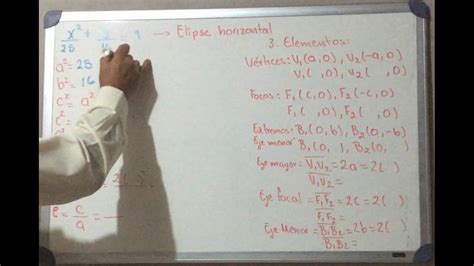 x²/25 + = 1 → Elipse horizontal
a² = 25
b² = 16
c² = a²
c²
e = c/a =
3. Elementos:
Vértices: V₁(a,0), V₂(-a,0)
V₁( ,0), V₂( ,0)
Focos: F₁(c,0), F₂(-c,0)
F₁( ,0), F₂( ,0)
Extremos: B₁(0,b), B₂(0,-b)
Eje menor: B₁(0, ), B₂(0, )
Eje mayor: V₁V₂ = 2a = 2( )
V₁V₂ =
Eje focal = F₁F₂ = 2c = 2( )
F₁F₂ =
Eje Menor: B₁B₂ = 2b = 2( )
B₁B₂ =